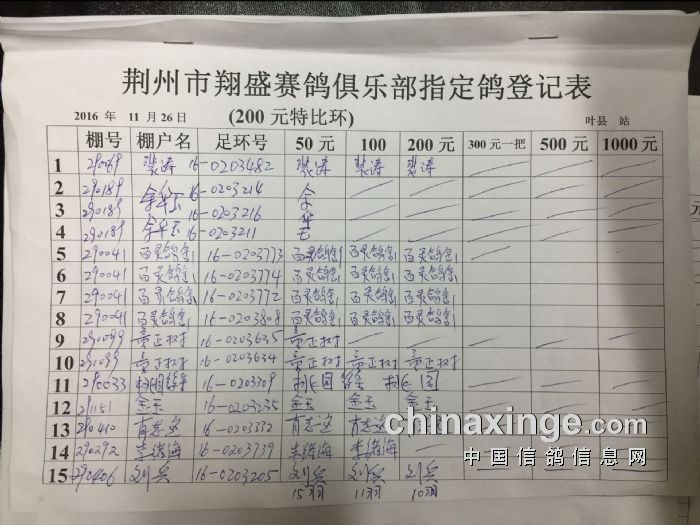 荆州市翔盛赛鸽俱乐部指定鸽登记表
2016 年 11 月 26 日 (200 元特比环) 叶县 站
棚号 棚户名 足环号 50 元 100 200 元 300 元一把 500 元 1000 元
1 16-0203482
2 290189 16-0203214
3 290189 16-0203216
4 290189 16-0203211
5 290041 百灵鸽舍 16-0203773 百灵鸽舍 百灵鸽舍 百灵鸽舍
6 290041 百灵鸽舍 16-0203774 百灵鸽舍 百灵鸽舍 百灵鸽舍
7 290041 百灵鸽舍 16-0203772 百灵鸽舍 百灵鸽舍 百灵鸽舍
8 290041 百灵鸽舍 16-0203808 百灵鸽舍 百灵鸽舍 百灵鸽舍
9 291099 黄正树 16-0203635 黄正树
10 291099 黄正树 16-0203634 黄正树 黄正树 黄正树
11 16-0203309
12 291151 金玉 16-0203235 金玉 金玉 金玉
13 290410 16-0203332
14 290292 李绪海 16-0203739 李绪海 李绪海
15 290406 刘兵 16-0203205 刘兵 刘兵 刘兵
15羽 11羽 10羽
chinaxinge.com
中国信鸽信息网